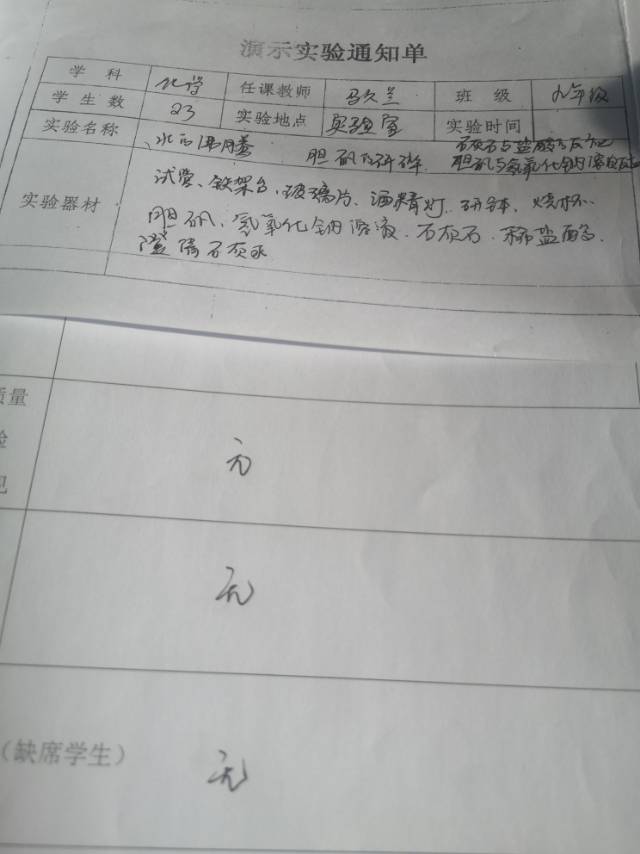 演示实验通知单
学科 化学 任课教师 马久兰 班级 九年级
学生数 23 实验地点 实验室 实验时间
实验名称 水的沸腾 胆矾的研碎 石灰石与盐酸的反应
胆矾与氢氧化钠溶液反应
实验器材 试管、铁架台、玻璃片、酒精灯、研钵、烧杯
胆矾、氢氧化钠溶液、石灰石、稀盐酸、
澄清石灰水
质量
无
无
(缺席学生) 无